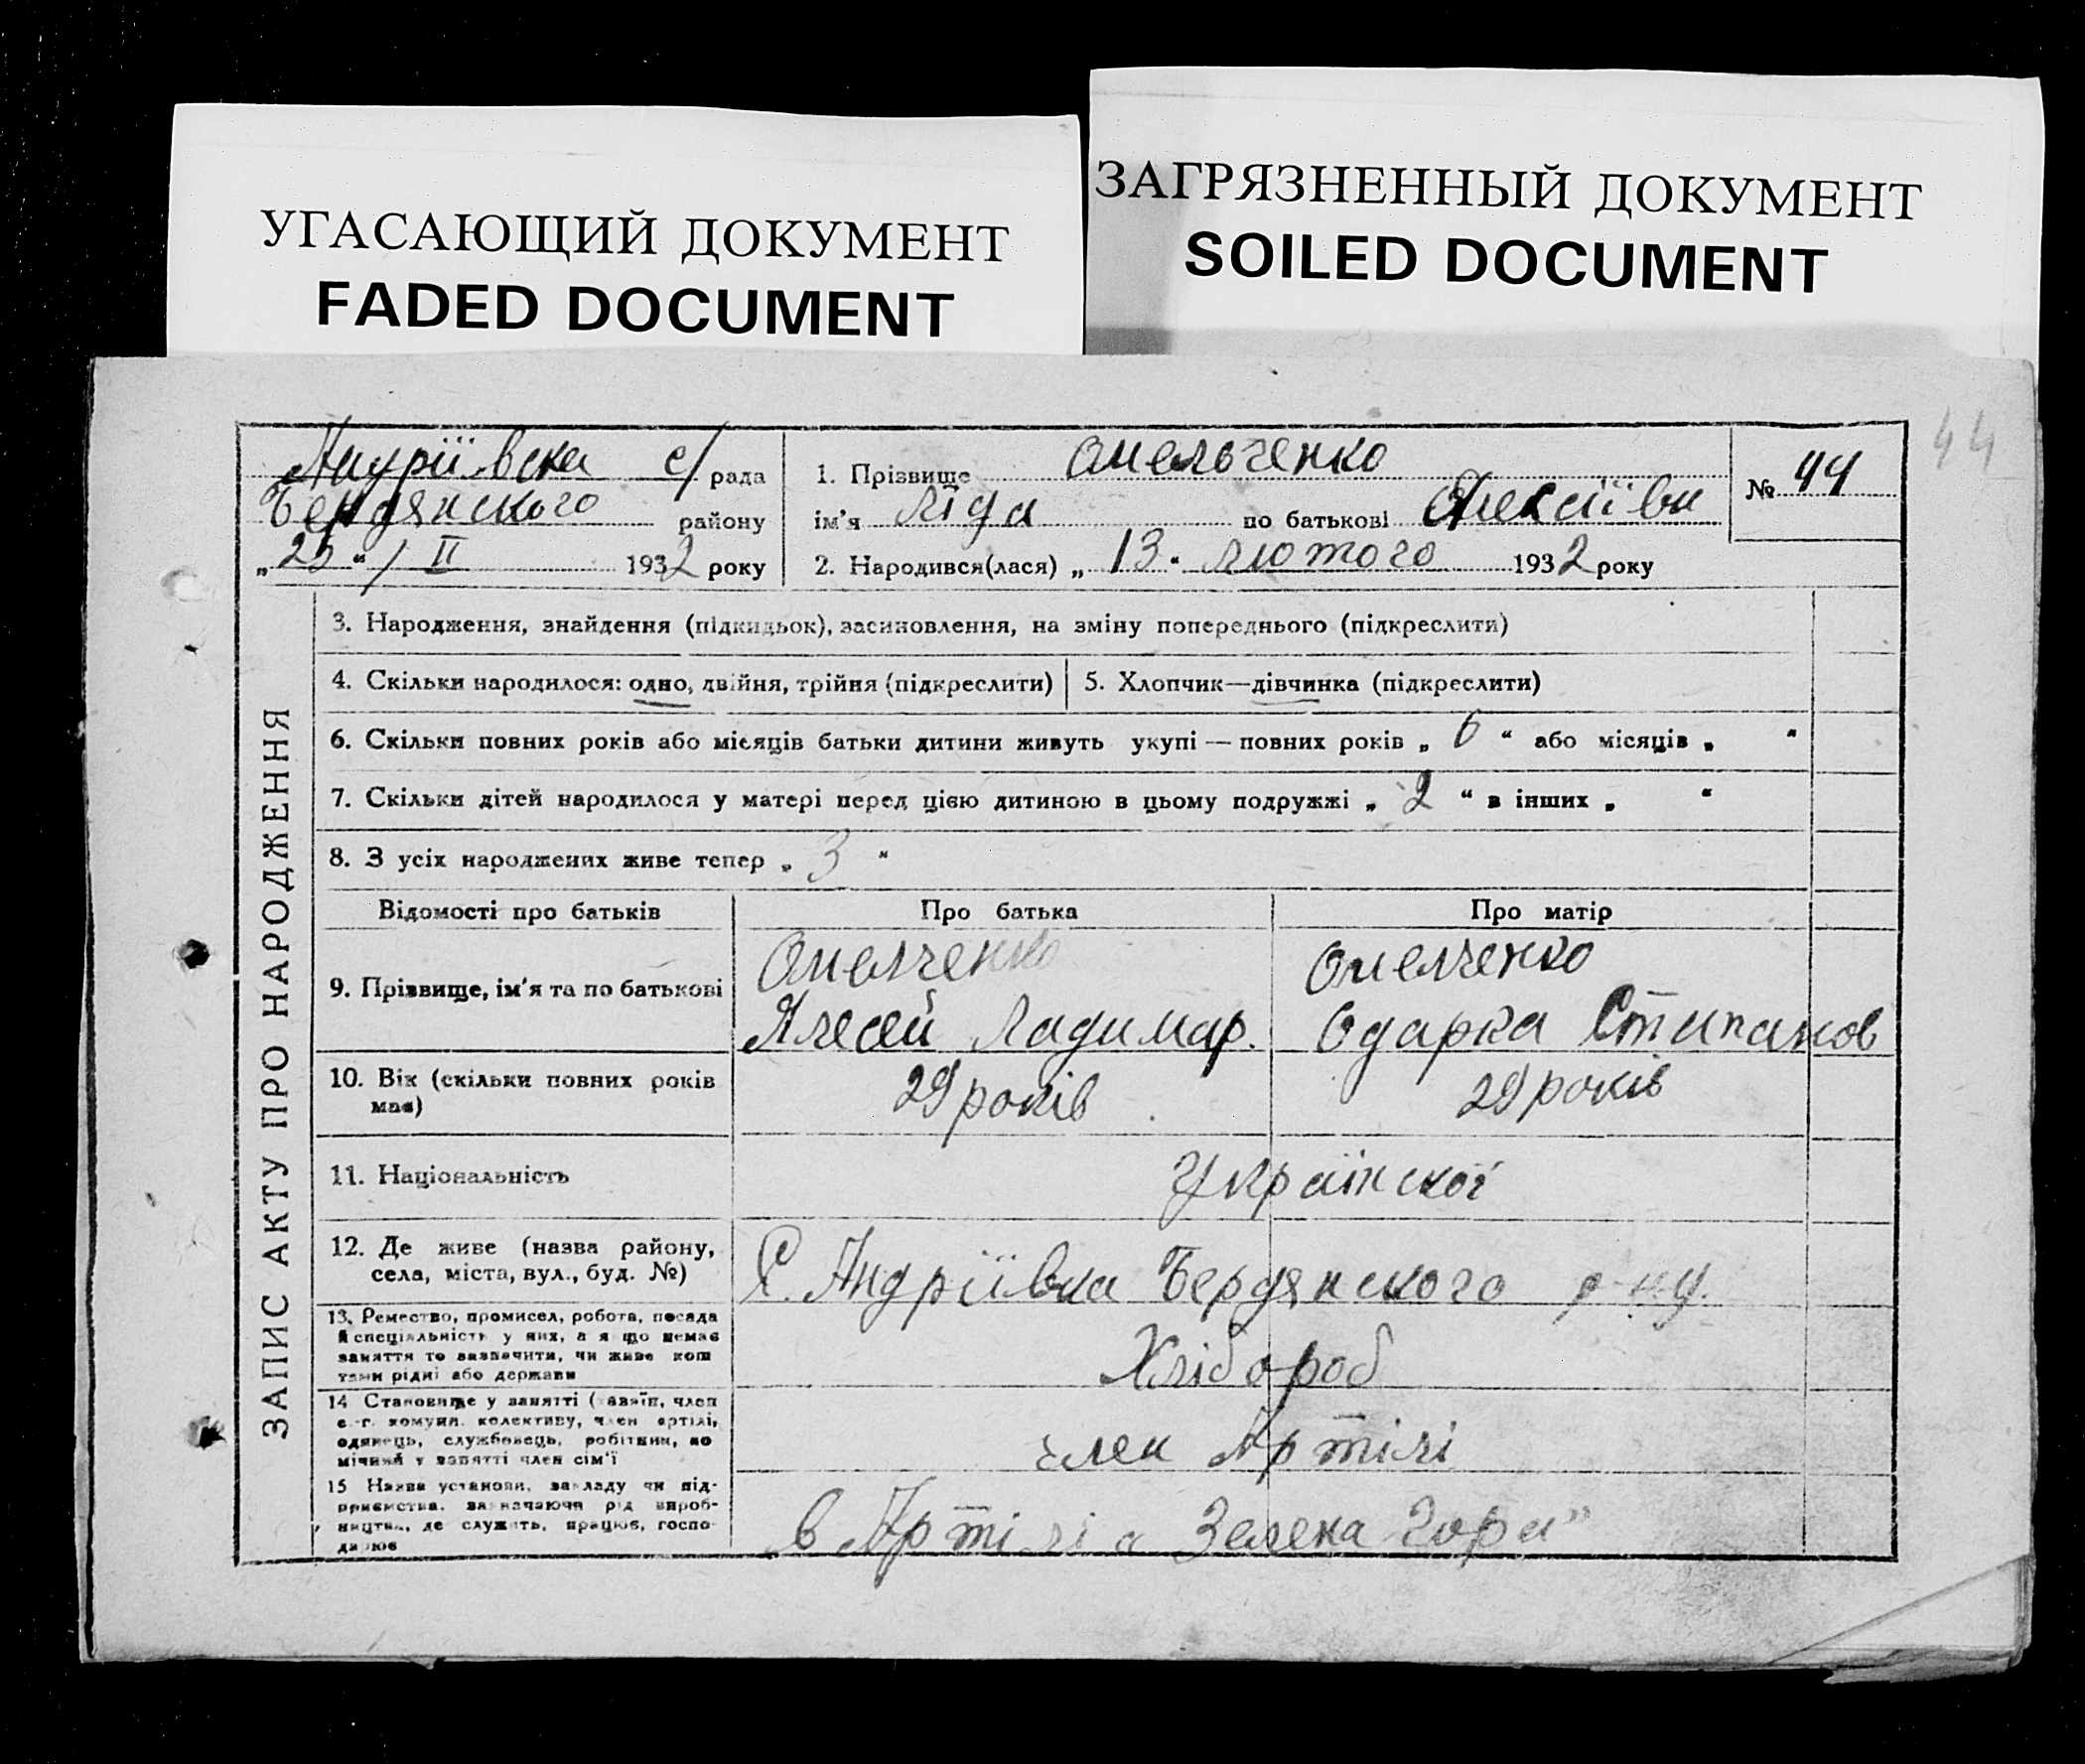 УГАСАЮЩИЙ ДОКУМЕНТ
FADED DOCUMENT
ЗАГРЯЗНЕННЫЙ ДОКУМЕНТ
SOILED DOCUMENT
44
Андріївска с/рада
Бердянского району
„25“ / II 1932 року
1. Прізвище Омельченко
ім'я Ліда по батькові Олексіївн
2. Народився(лася) „13“ лютого 1932 року
№ 44
ЗАПИС АКТУ ПРО НАРОДЖЕННЯ
3. Народження, знайдення (підкидьок), засиновлення, на зміну попереднього (підкреслити)
4. Скільки народилося: одно, двійня, трійня (підкреслити)
5. Хлопчик—дівчинка (підкреслити)
6. Скільки повних років або місяців батьки дитини живуть укупі — повних років „ 6 “ або місяців „ “
7. Скільки дітей народилося у матері перед цією дитиною в цьому подружжі „ 2 “ в інших „ “
8. З усіх народжених живе тепер „ 3 “
Відомості про батьків Про батька Про матір
9. Прізвище, ім'я та по батькові
Омелченко
Алесей Ладимар.
Омелченко
Одарка Стипанов
10. Вік (скільки повних років
має)
29 років
29 років
11. Національність
Українскої
12. Де живе (назва району,
села, міста, вул., буд. №)
С. Андріївка Бердянского р-ну.
13. Ремество, промисел, робота, посада
й спеціяльність у них, а якщо немає
заняття то визначити, чи живе кош
тами рідні або держави
Хлібороб
14 Становище у занятті (хазяїн, член
с.-г. комуни, колективу, член артілі,
одинець, службовець, робітник, по
мічний у занятті член сім'ї
член Артілі
15 Назва установи, закладу чи під-
приємства, зазначаючи рід вироб-
ництва, де служить, працює, госпо-
дарює
в Артілі „Зелена Гора”